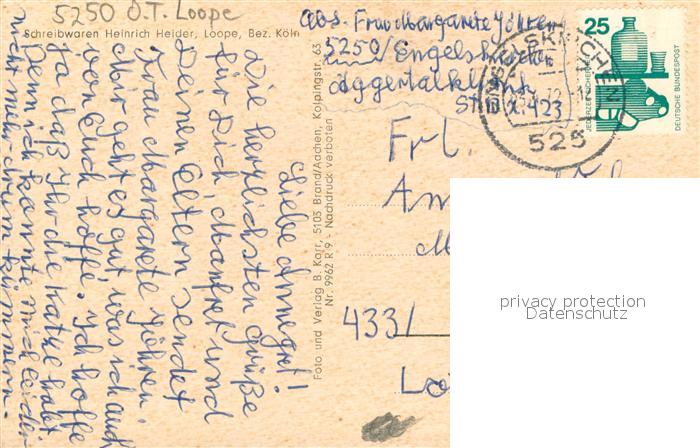 5250 O.T. Loope
Schreibwaren Heinrich Heider, Loope, Bez. Köln
Abs. Frau Margarete Jöhren
5250/Engelskirchen
Aggertalklinik
25
JEDERZEIT SICHERHEIT
DEUTSCHE BUNDESPOST
ENGELSKIRCHEN
525
Frl.
433/
Foto und Verlag B. Karr, 5105 Brand/Aachen, Kolpingstr. 63
Nr. 9962 R 9 - Nachdruck verboten
Liebe Annegret!
Die herzlichsten Grüße
für Dich, Manfret und
Deinen Eltern sendet
Frau Margarete Jöhren.
Mir geht es gut was ich auch
von Euch hoffe. Ich hoffe
ja daß Ihr die Katze habt
Denn ich konnte mich leider
nicht mehr drum kümmern.
privacy protection
Datenschutz